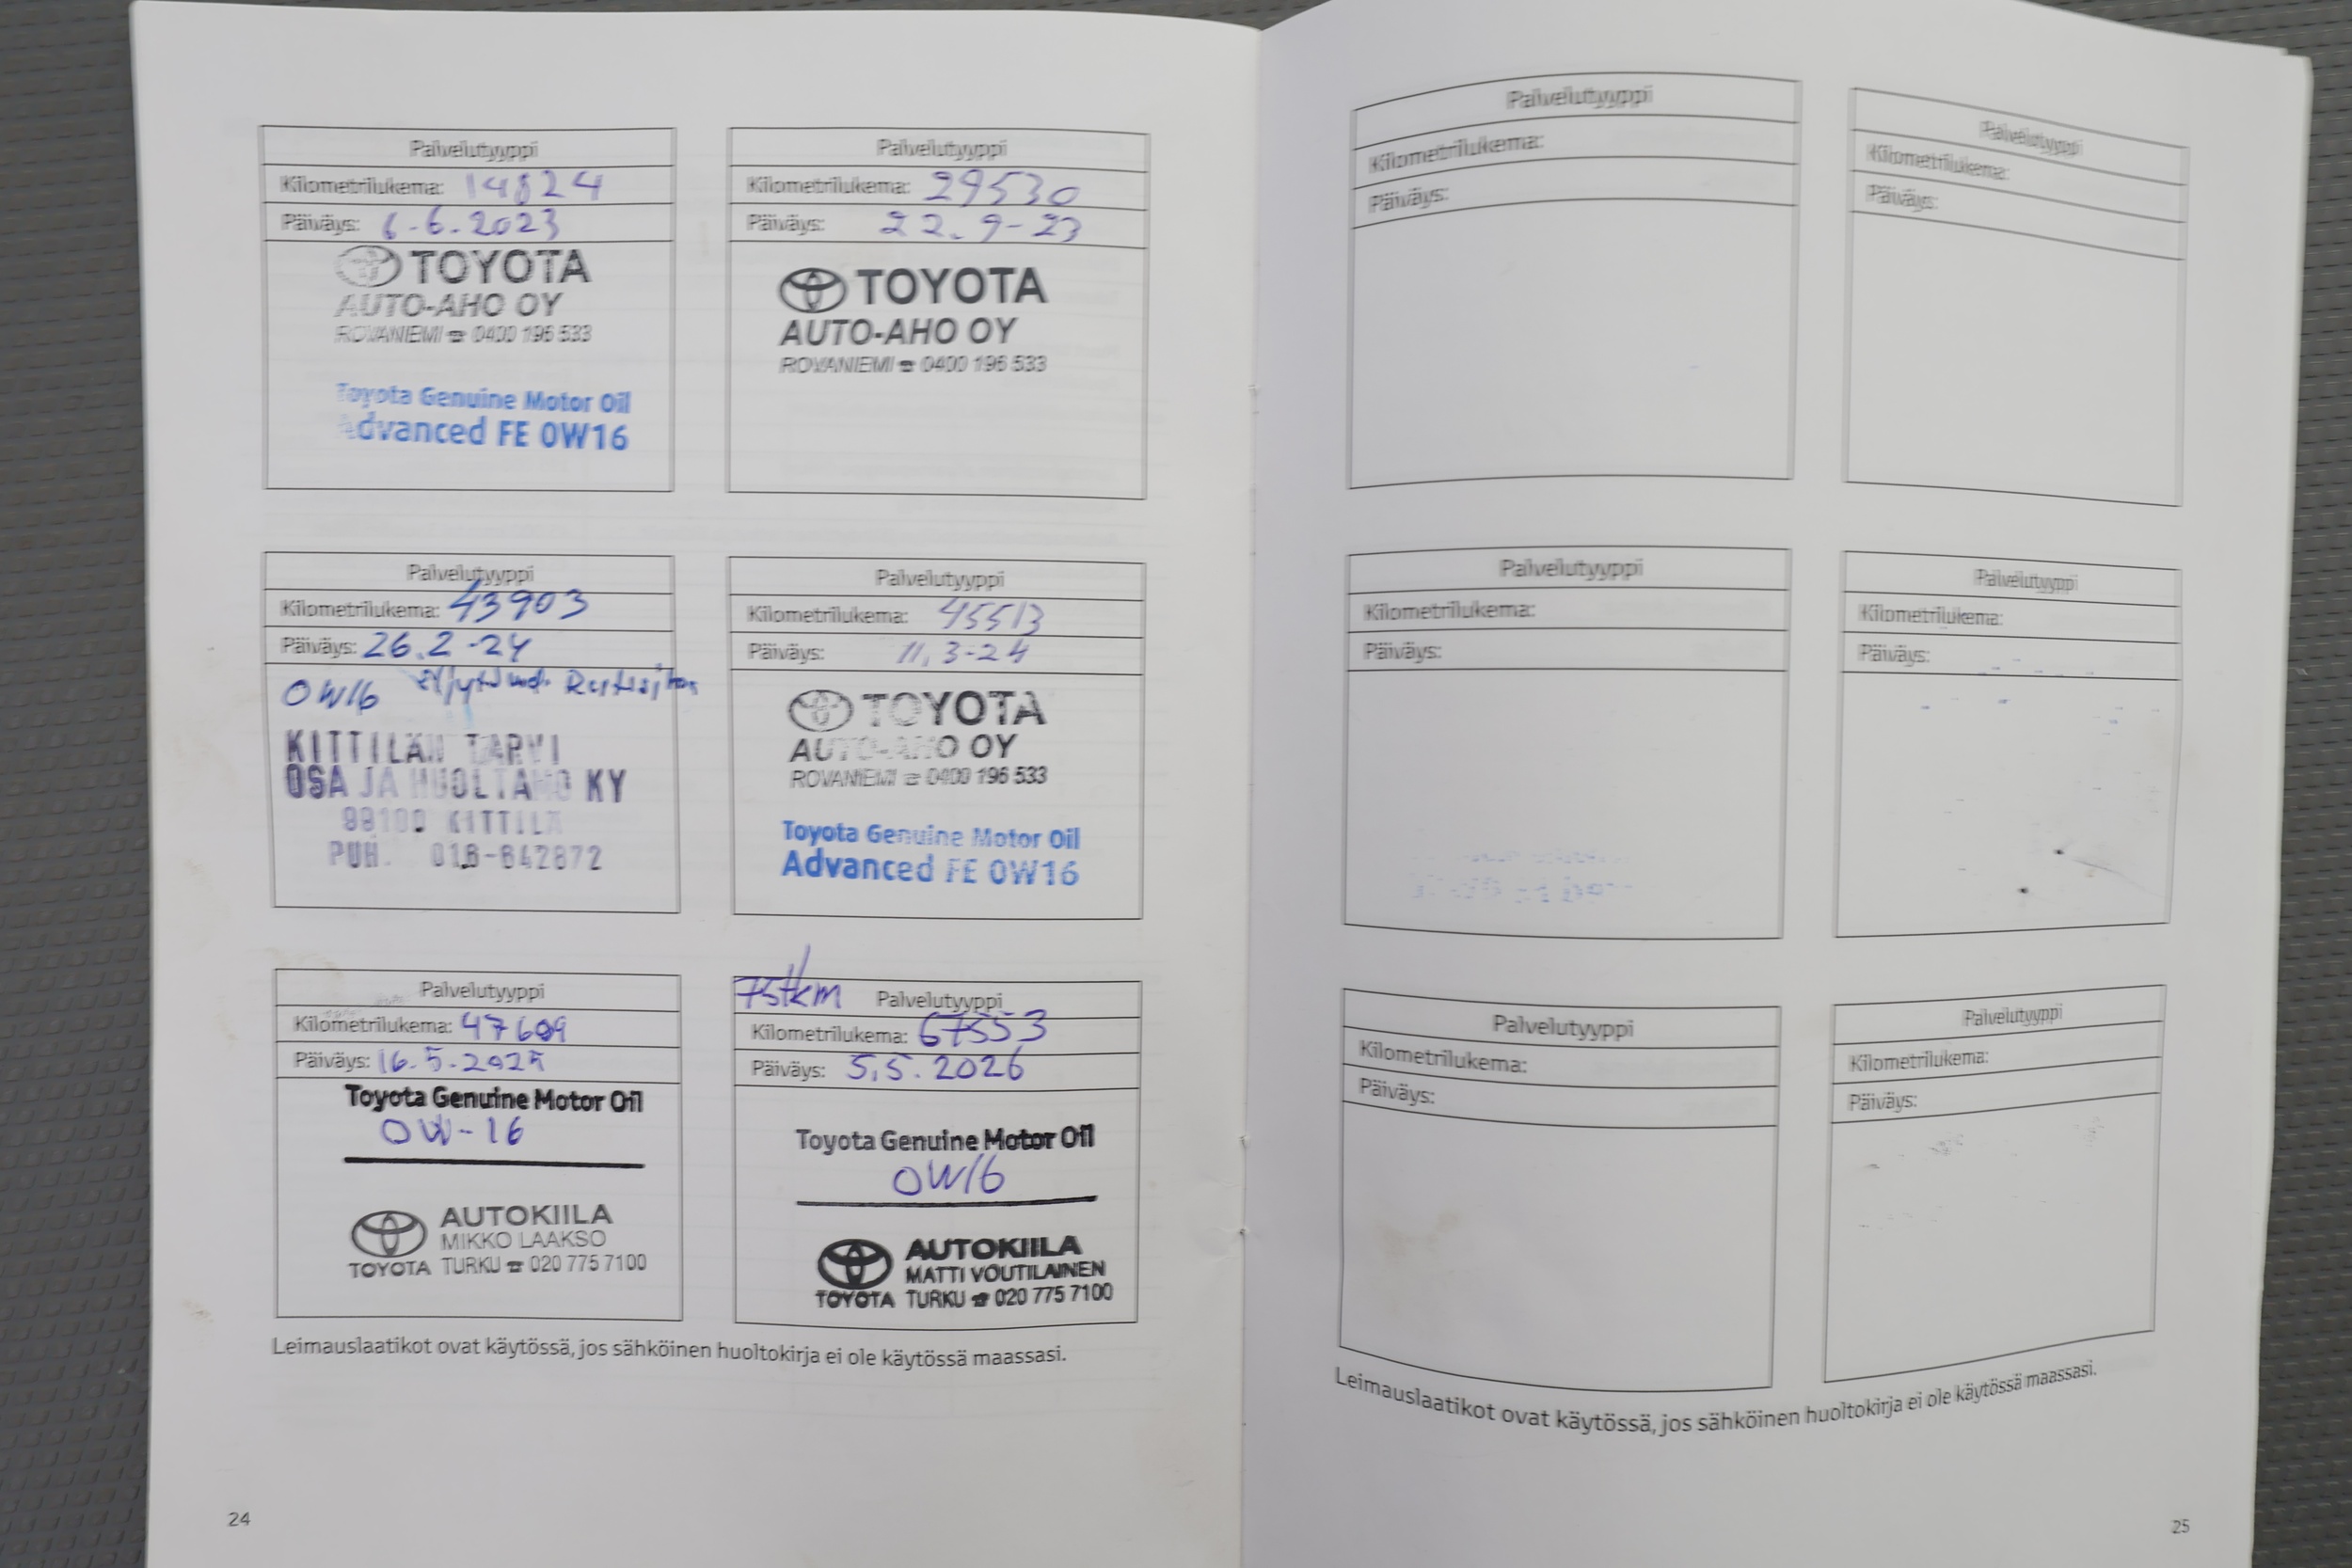 Palvelutyyppi
Kilometrilukema: 14824
Päiväys: 6.6.2023
TOYOTA
AUTO-AHO OY
ROVANIEMI ☎ 0400 196 533
Toyota Genuine Motor Oil
Advanced FE 0W16
Palvelutyyppi
Kilometrilukema: 29530
Päiväys: 22.9-23
TOYOTA
AUTO-AHO OY
ROVANIEMI ☎ 0400 196 533
Palvelutyyppi
Kilometrilukema: 43903
Päiväys: 26.2-24
0W16
KITTILÄN TARVI
OSA JA HUOLTAMO KY
99100 KITTILÄ
PUH. 016-642872
Palvelutyyppi
Kilometrilukema: 45513
Päiväys: 11.3-24
TOYOTA
AUTO-AHO OY
ROVANIEMI ☎ 0400 196 533
Toyota Genuine Motor Oil
Advanced FE 0W16
Palvelutyyppi
Kilometrilukema:
Päiväys:
Toyota Genuine Motor Oil
0W-16
AUTOKIILA
MIKKO LAAKSO
TOYOTA TURKU ☎ 020 775 7100
75tkm
Palvelutyyppi
Kilometrilukema: 67553
Päiväys: 5.5.2026
Toyota Genuine Motor Oil
0W16
AUTOKIILA
MATTI VOUTILAINEN
TOYOTA TURKU ☎ 020 775 7100
Leimauslaatikot ovat käytössä, jos sähköinen huoltokirja ei ole käytössä maassasi.
24
Palvelutyyppi
Kilometrilukema:
Päiväys:
Palvelutyyppi
Kilometrilukema:
Päiväys:
Palvelutyyppi
Kilometrilukema:
Päiväys:
Palvelutyyppi
Kilometrilukema:
Päiväys:
Palvelutyyppi
Kilometrilukema:
Päiväys:
Palvelutyyppi
Kilometrilukema:
Päiväys:
Leimauslaatikot ovat käytössä, jos sähköinen huoltokirja ei ole käytössä maassasi.
25